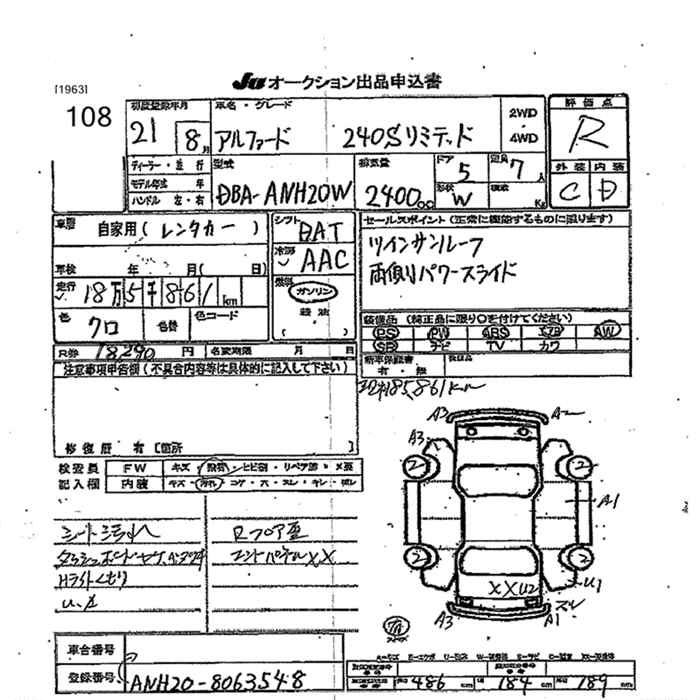 [1963]
JU オークション出品申込書
108
初度登録年月
21 8月
車名・グレード
アルファード 240Sリミテッド
2WD
・
4WD
評価点
R
ディーラー・並行
モデル年式 年
ハンドル 左・右
型式
DBA-ANH20W
排気量
2400cc
ドア
5
形状
W
定員
7人
積載
Kg
外装 内装
C D
車歴
自家用(レンタカー)
シフト
FAT
冷房
AAC
燃料
ガソリン
軽油
( )
車検 年 月( 日)
走行
18万5千861km
色
クロ
色替
色コード
R券 18290円 名変期限 月 日
セールスポイント(正常に機能するものに限ります)
ツインサンルーフ
両側パワースライド
装備品(純正品に限り○を付けてください)
PS PW ABS エアB AW
SR ナビ TV カワ
新車保証書
有・無
後日品
注意事項申告欄(不具合内容等は具体的に記入して下さい)
185,861km
修復歴 有[箇所 ]
検査員
記入欄
FW キズ・飛石・ヒビ割・リペア跡・×要
内装 キズ・汚れ・コゲ・穴・スレ・キレ・
シート汚れ
Rフロア歪
エンドパネルXX
Hライトくもり
A3
A2
A3
2
2
A1
2
2
XXU2
U1
スレ
A3
A1
車台番号
登録番号
ANH20-8063548
486 cm 184 cm 189 cm